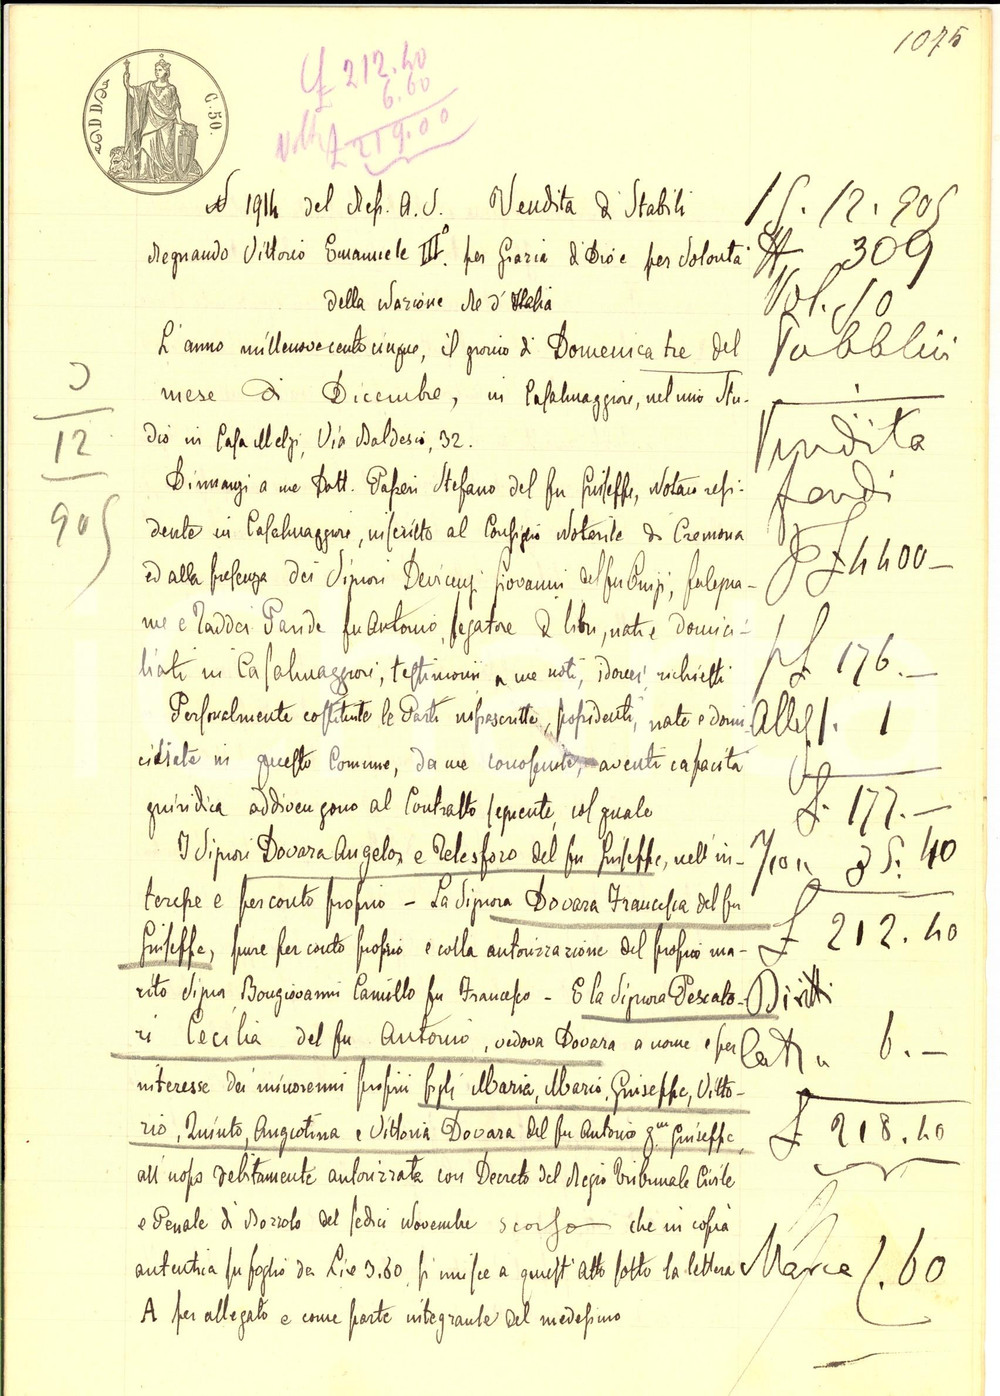 1075
C. 50.
£ 212.40
6.60
£ 219.00
N 1914 del Rep. A. V. Vendita di Stabili
Regnando Vittorio Emanuele III°. per Grazia di Dio e per Volontà
della Nazione Re d'Italia
L'anno millenovecentocinque, il giorno di Domenica tre del
mese di Dicembre, in Casalmaggiore, nel mio Stu-
dio in Casa Melzi, Via Baldesio, 32.
Dinnanzi a me Dott. Stefano del fu Giuseppe, Notaio resi-
dente in Casalmaggiore, inscritto al Consiglio Notarile di Cremona
ed alla presenza dei Signori Devicenzi Giovanni del fu Luigi, falegna-
me e Taddei Paride fu Antonio, legatore di libri, nati e domici-
liati in Casalmaggiore, testimoni a me noti, idonei, richiesti
Personalmente costituite le Parti infrascritte, possidenti, nate e domi-
ciliate in questo Comune, da me conosciute, aventi capacità
giuridica addivengono al Contratto seguente, col quale
I Signori Dovara Angelo e Telesforo del fu Giuseppe, nell'in-
teresse e per conto proprio - La Signora Dovara Francesca del fu
Giuseppe, pure per conto proprio e colla autorizzazione del proprio ma-
rito Signor Bongiovanni Camillo fu Francesco - E la Signora Pescato-
ri Cecilia del fu Antonio, vedova Dovara a nome e per
interesse dei minorenni proprii figli Maria, Mario, Giuseppe, Vitto-
rio, Quinto, Angiolina e Vittoria Dovara del fu Antonio qm Giuseppe,
all'uopo debitamente autorizzata con Decreto del Regio Tribunale Civile
e Penale di Bozzolo del sedici Novembre scorso che in copia
autentica su foglio da Lire 3.60 si unisce a quest'atto sotto la lettera
A per allegato e come parte integrante del medesimo
3
12
905
15. 12. 905
N 309
Vol. 50
Pubblici
Vendita
fondi
£ 4400 -
£ 176. -
Alleg. 1
£. 177. -
35. 40
£ 212.40
Diritti
Catn 6. -
£ 218.40
Marca 1.60